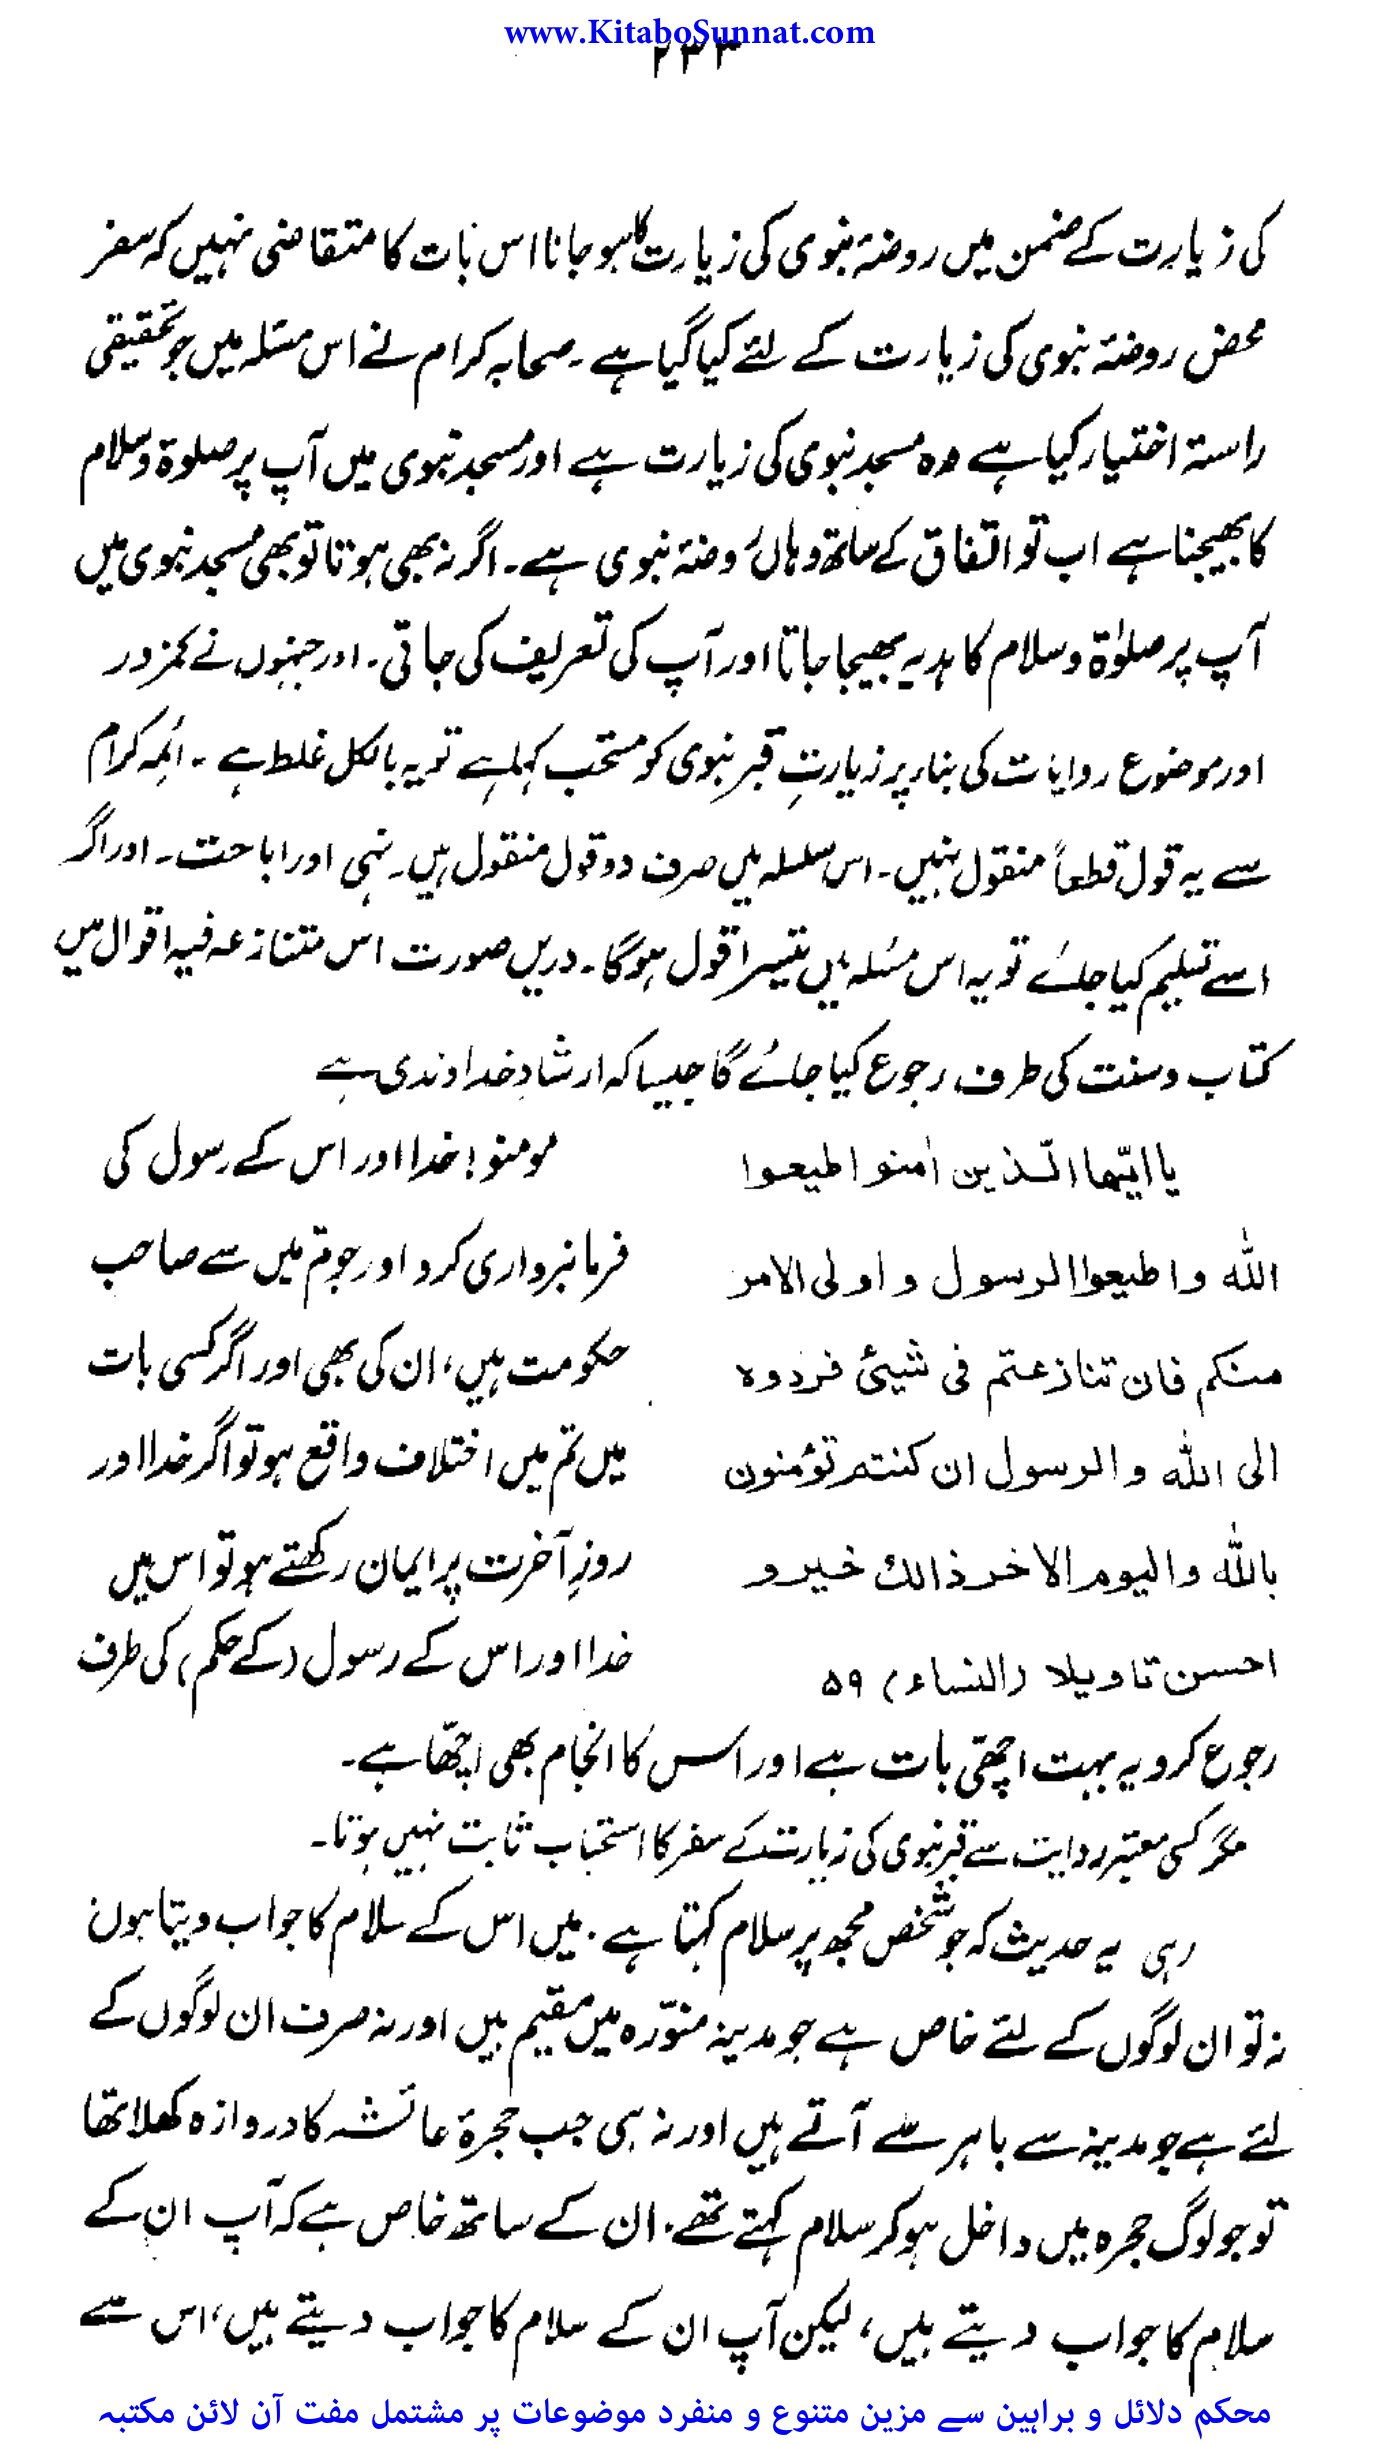 www.KitaboSunnat.com
۲۳۳
کی زیارت کے ضمن میں روضۂ نبوی کی زیارت کا ہو جانا اس بات کا متقاضی نہیں کہ سفر
محض روضۂ نبوی کی زیارت کے لئے کیا گیا ہے ۔ صحابہ کرام نے اس مسئلہ میں جو تحقیقی
راستہ اختیار کیا ہے وہ مسجد نبوی کی زیارت ہے اور مسجد نبوی میں آپ پر صلوة و سلام
کا بھیجنا ہے اب تو اتفاق کے ساتھ وہاں روضۂ نبوی ہے ۔ اگر نہ بھی ہوتا تو بھی مسجد نبوی میں
آپ پر صلوٰة و سلام کا ہدیہ بھیجا جاتا اور آپ کی تعریف کی جاتی ۔ اور جنہوں نے کمزور
اور موضوع روایات کی بناء پر زیارتِ قبر نبوی کو مستحب کہا ہے تو یہ بالکل غلط ہے ۔ ائمہ کرام
سے یہ قول قطعاً منقول نہیں ۔ اس سلسلہ میں صرف دو قول منقول ہیں ۔ نہی اور اباحت ۔ اور اگر
اسے تسلیم کیا جائے تو یہ اس مسئلہ میں تیسرا قول ہوگا ۔ دریں صورت اس متنازعہ فیہ اقوال میں
کتاب و سنت کی طرف رجوع کیا جائے گا جیسا کہ ارشادِ خداوندی ہے
یا ایّھا الّذین اٰمنوا اطیعوا
اللّٰه واطیعوا الرسول و اولی الامر
منکم فان تنازعتم فی شیئ فردوہ
الی اللّٰه والرسول ان کنتم تؤمنون
باللّٰه والیوم الاخر ذالك خیر و
احسن تاویلا (النساء) ۵۹
مومنو! خدا اور اس کے رسول کی
فرمانبرواری کرو اور جو تم میں سے صاحب
حکومت ہیں، ان کی بھی اور اگر کسی بات
میں تم میں اختلاف واقع ہو تو اگر خدا اور
روزِ آخرت پر ایمان رکھتے ہو تو اس میں
خدا اور اس کے رسول (کے حکم) کی طرف
رجوع کرو یہ بہت اچھی بات ہے اور اس کا انجام بھی اچھّا ہے ۔
مگر کسی معتبر روایت سے قبر نبوی کی زیارت کے سفر کا استحباب ثابت نہیں ہوتا ۔
رہی یہ حدیث کہ جو شخص مجھ پر سلام کہتا ہے ۔ میں اس کے سلام کا جواب دیتا ہوں
نہ تو ان لوگوں کے لئے خاص ہے جو مدینہ منوّرہ میں مقیم ہیں اور نہ صرف ان لوگوں کے
لئے ہے جو مدینہ سے باہر سے آتے ہیں اور نہ ہی جب حجرۂ عائشہ کا دروازہ کھلا تھا
تو جو لوگ حجرہ میں داخل ہو کر سلام کہتے تھے ۔ ان کے ساتھ خاص ہے کہ آپ ان کے
سلام کا جواب دیتے ہیں، لیکن آپ ان کے سلام کا جواب دیتے ہیں، اس سے
محکم دلائل و براہین سے مزین متنوع و منفرد موضوعات پر مشتمل مفت آن لائن مکتبہ